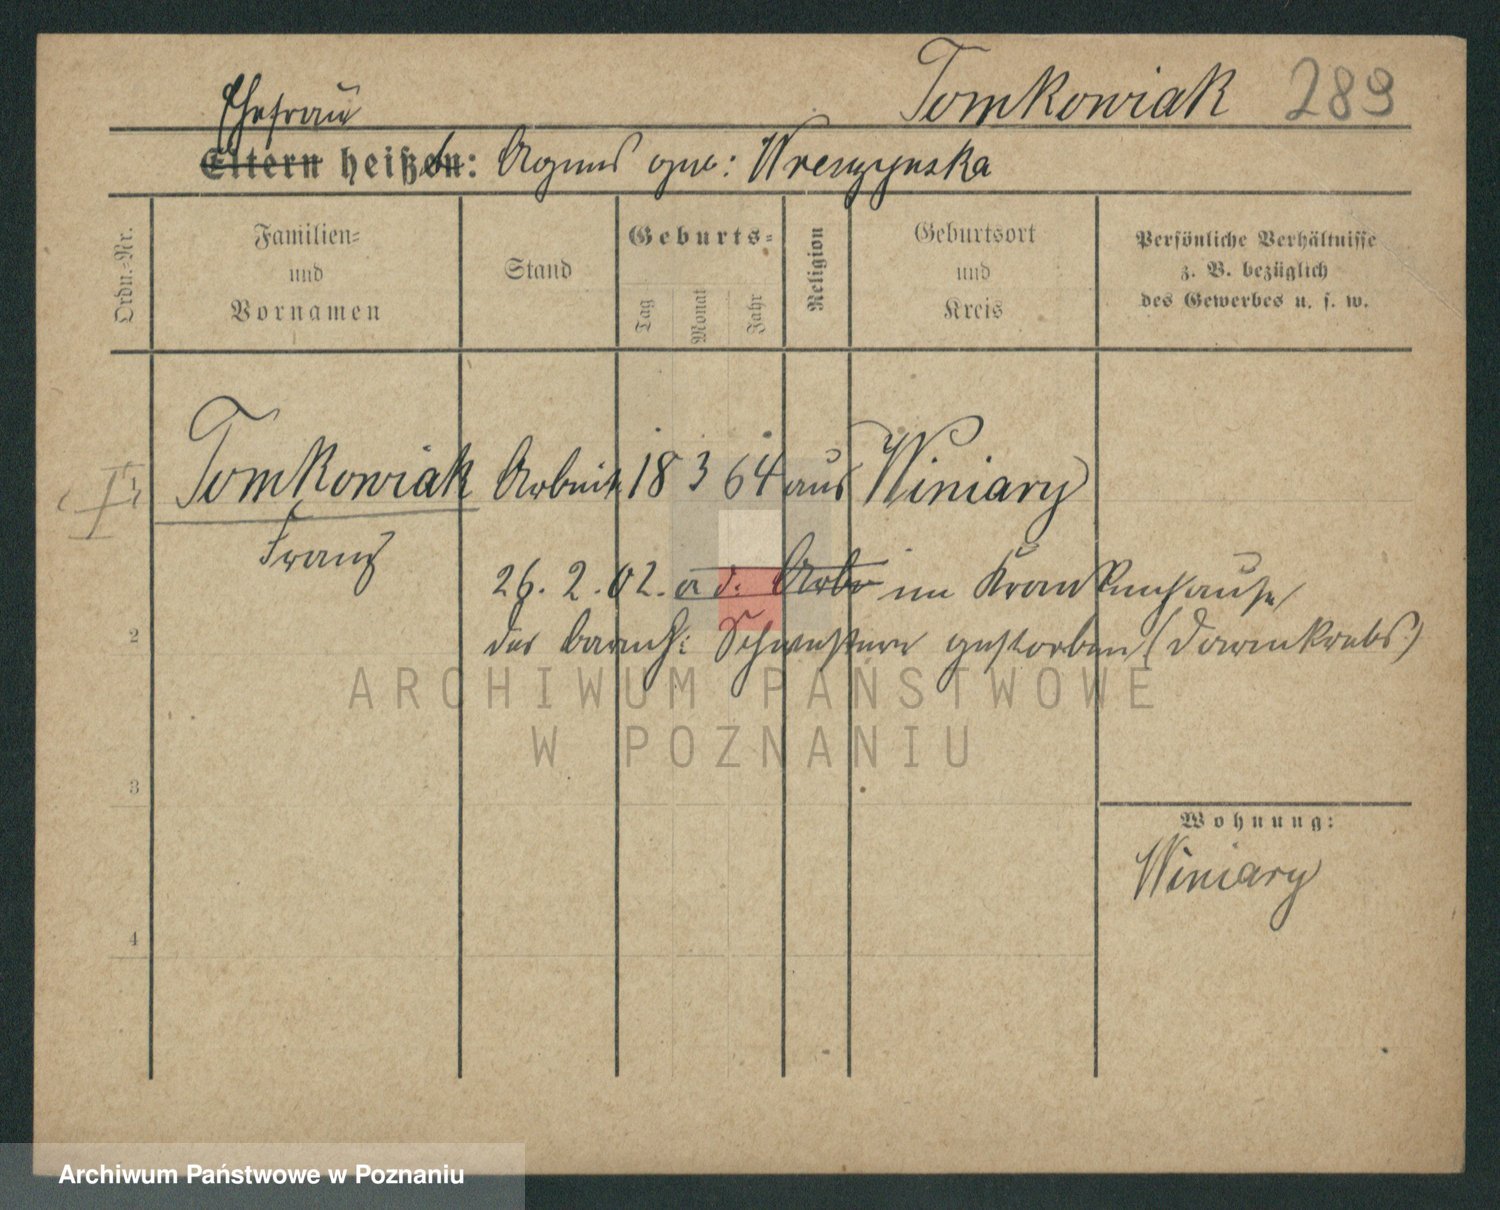 Tomkowiak 289
Ehefrau
Eltern heißen: Agnes geb: Wreszynska
Ordn.-Nr.
Familien-
und
Vornamen
Stand
Geburts-
Tag
Monat
Jahr
Religion
Geburtsort
und
Kreis
Persönliche Verhältnisse
z. B. bezüglich
des Gewerbes u. s. w.
1 Tomkowiak Arbeit. 18 3 64 aus Winiary
Franz
26. 2. 02. a d. Arbr im Krankenhause
2 der barmh: Schwestern gestorben (Darmkrebs.)
ARCHIWUM PAŃSTWOWE
W POZNANIU
3
Wohnung:
Winiary
4
Archiwum Państwowe w Poznaniu